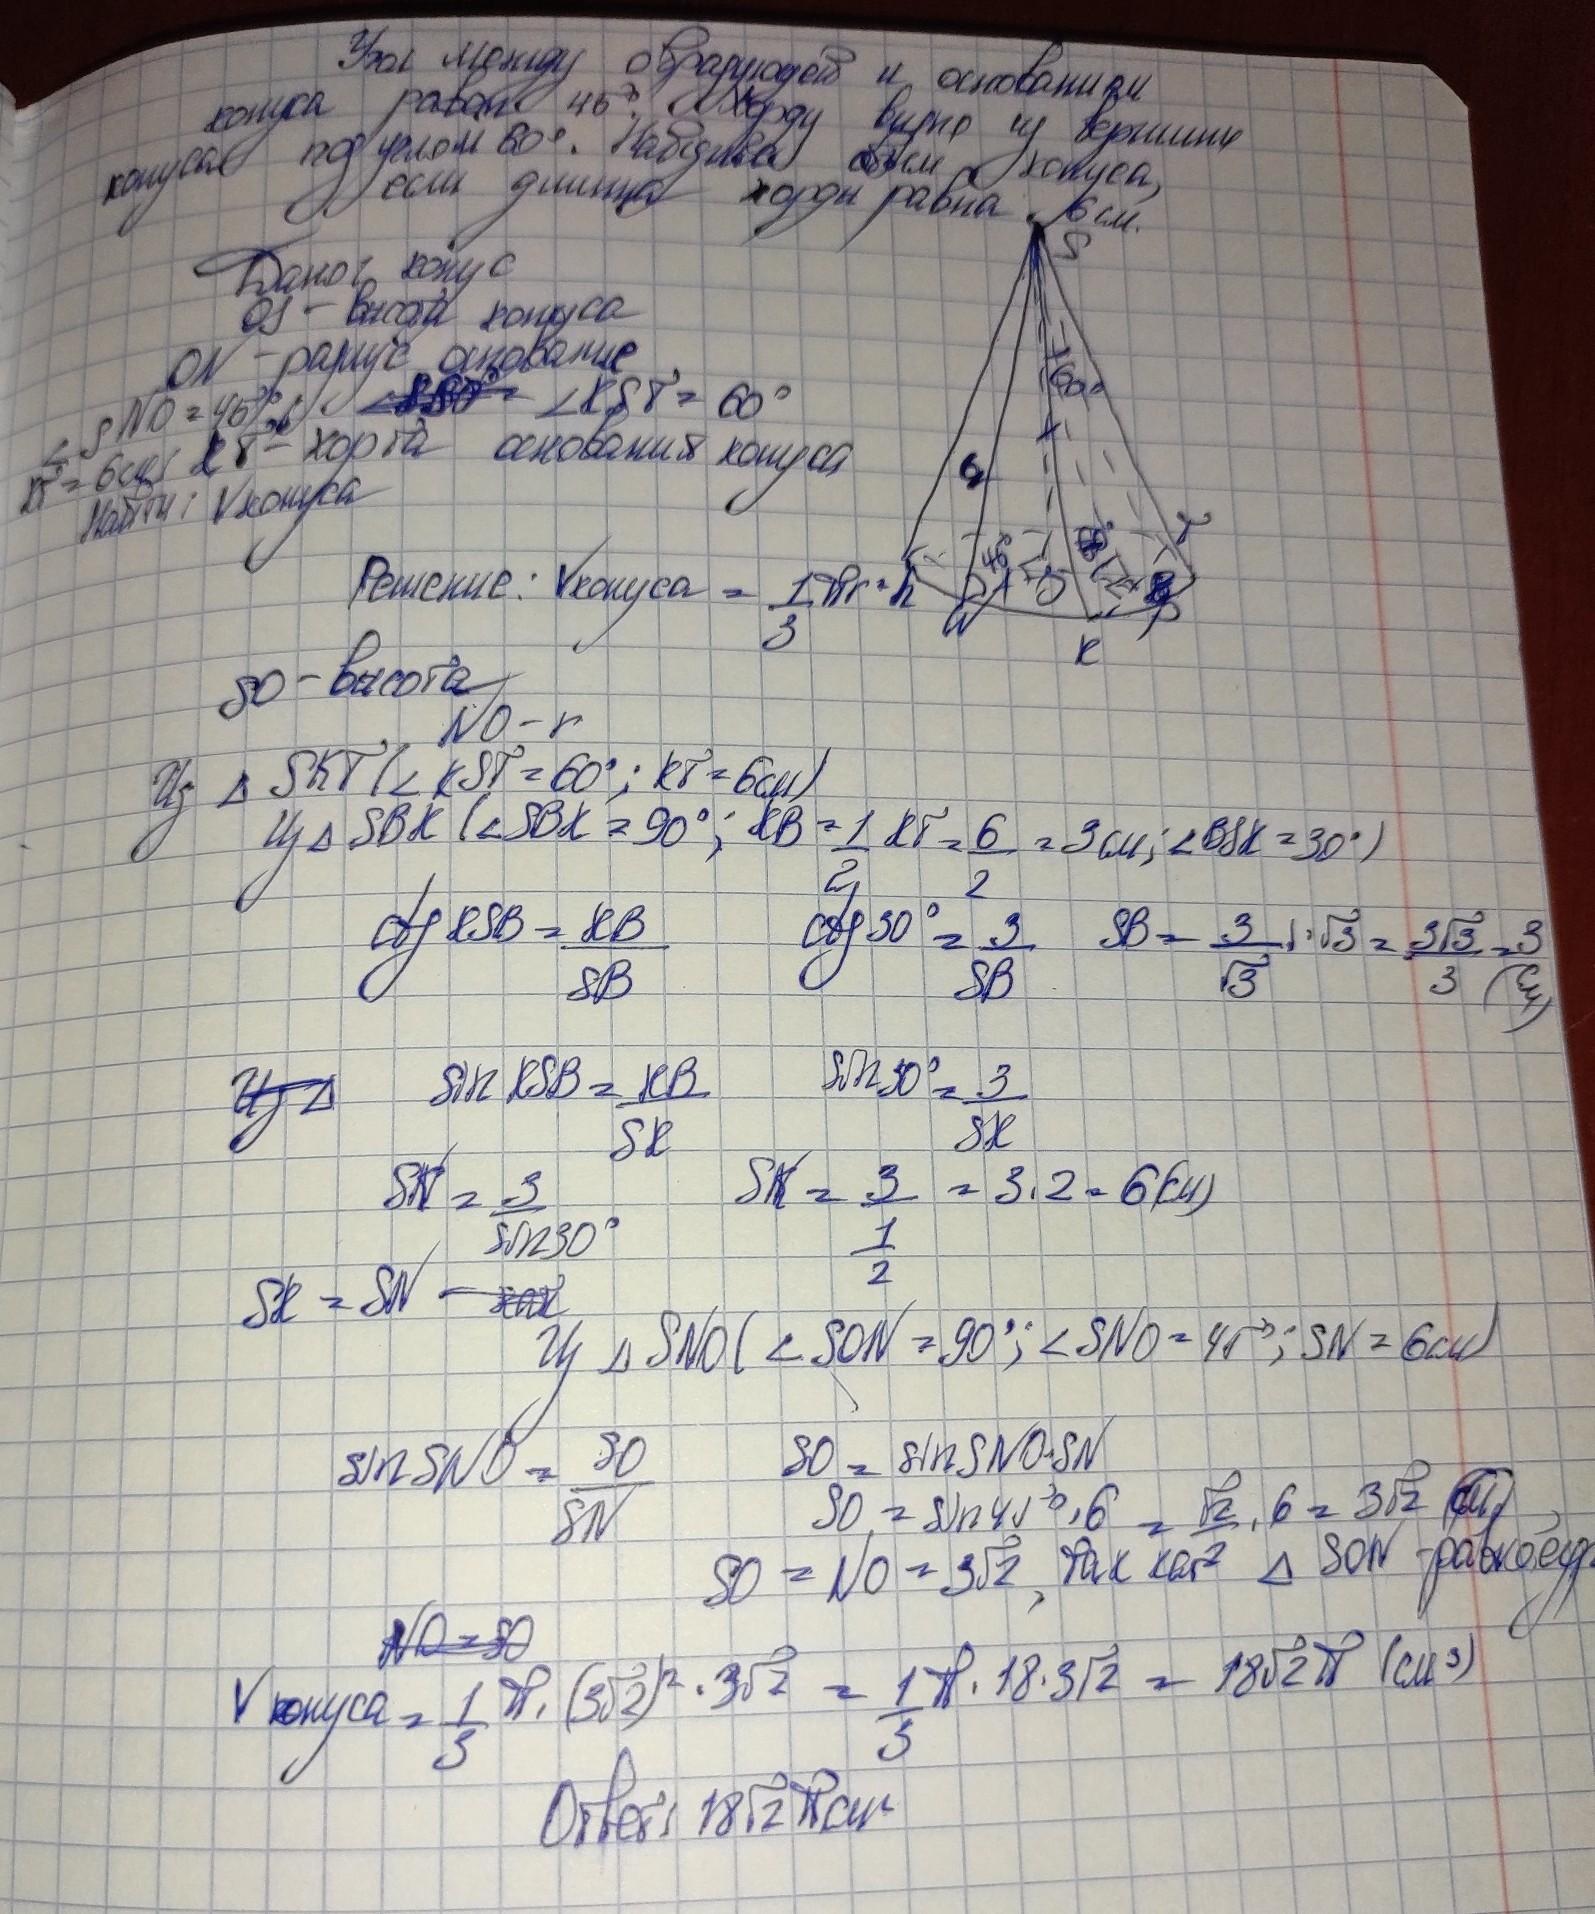 Угол между образующей и основанием
конуса равен 45°. Хорду видно из вершины
конуса под углом 60°. Найдите объём конуса,
если длина хорды равна 6 см.
S
Дано: конус
OS - высота конуса
ON - радиус основание
∠SNO = 45°; ∠KST = 60°
KT = 6см; KT - хорда основания конуса
Найти: V конуса
60°
6
45°
O
T
N
K
Решение: V конуса = 1/3 πr² h
SO - высота
NO - r
Из △ SKT (∠KST = 60°; KT = 6см)
Из △ SBK (∠SBK = 90°; KB = 1/2 KT = 6/2 = 3 см; ∠BSK = 30°)
ctg KSB = KB/SB   ctg 30° = 3/SB   SB = 3/√3 · √3 = 3√3/3 = 3 (см)
Из △   sin KSB = KB/SK   sin 30° = 3/SK
SK = 3/sin30°   SK = 3/(1/2) = 3·2 = 6(см)
SK = SN -
Из △ SNO (∠SON = 90°; ∠SNO = 45°; SN = 6см)
sin SNO = SO/SN   SO = sinSNO·SN
SO = sin45°·6 = √2/2 · 6 = 3√2 (см)
SO = NO = 3√2, так как △ SON - равнобедр
NO = SO
V конуса = 1/3 π·(3√2)²·3√2 = 1/3 π·18·3√2 = 18√2π (см³)
Ответ: 18√2π см